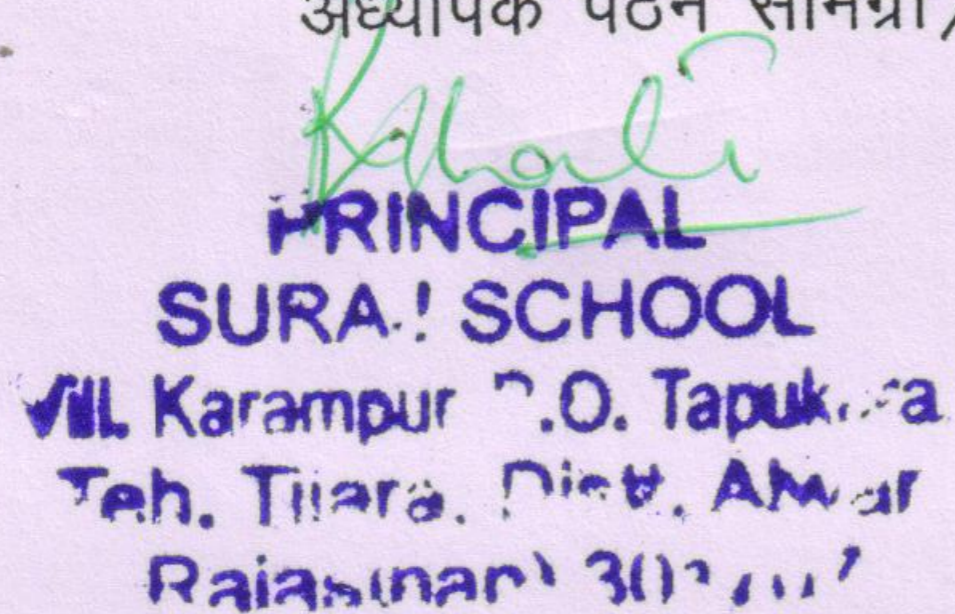 अध्यापक पठन सामग्री
PRINCIPAL
SURAJ SCHOOL
Vill. Karampur P.O. Tapukara
Teh. Tijara. Distt. Alwar
Rajasthan)